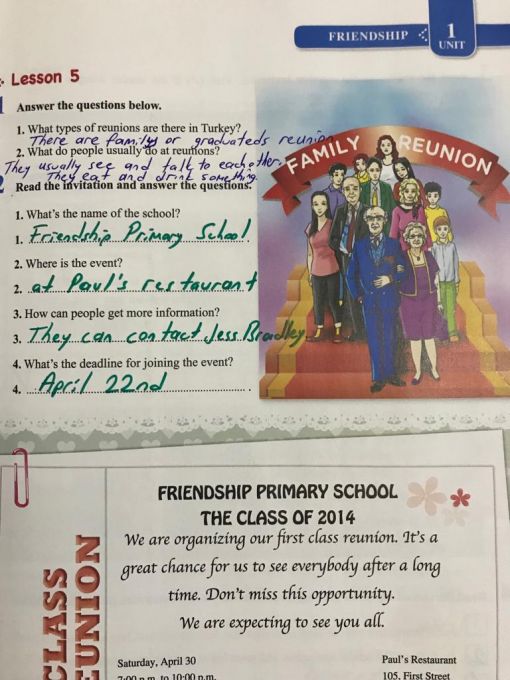 FRIENDSHIP
1
UNIT
Lesson 5
Answer the questions below.
1. What types of reunions are there in Turkey?
There are family or graduateds reunion
2. What do people usually do at reunions?
They usually see and talk to each other.
They eat and drink something.
2 Read the invitation and answer the questions.
1. What's the name of the school?
1. Friendship Primary School.
2. Where is the event?
2. at Paul's restaurant
3. How can people get more information?
3. They can contact Jess Bradley
4. What's the deadline for joining the event?
4. April 22nd.
FAMILY REUNION
FRIENDSHIP PRIMARY SCHOOL
THE CLASS OF 2014
We are organizing our first class reunion. It's a
great chance for us to see everybody after a long
time. Don't miss this opportunity.
We are expecting to see you all.
CLASS
EUNION
Saturday, April 30
7:00 p.m. to 10:00 p.m.
Paul's Restaurant
105, First Street